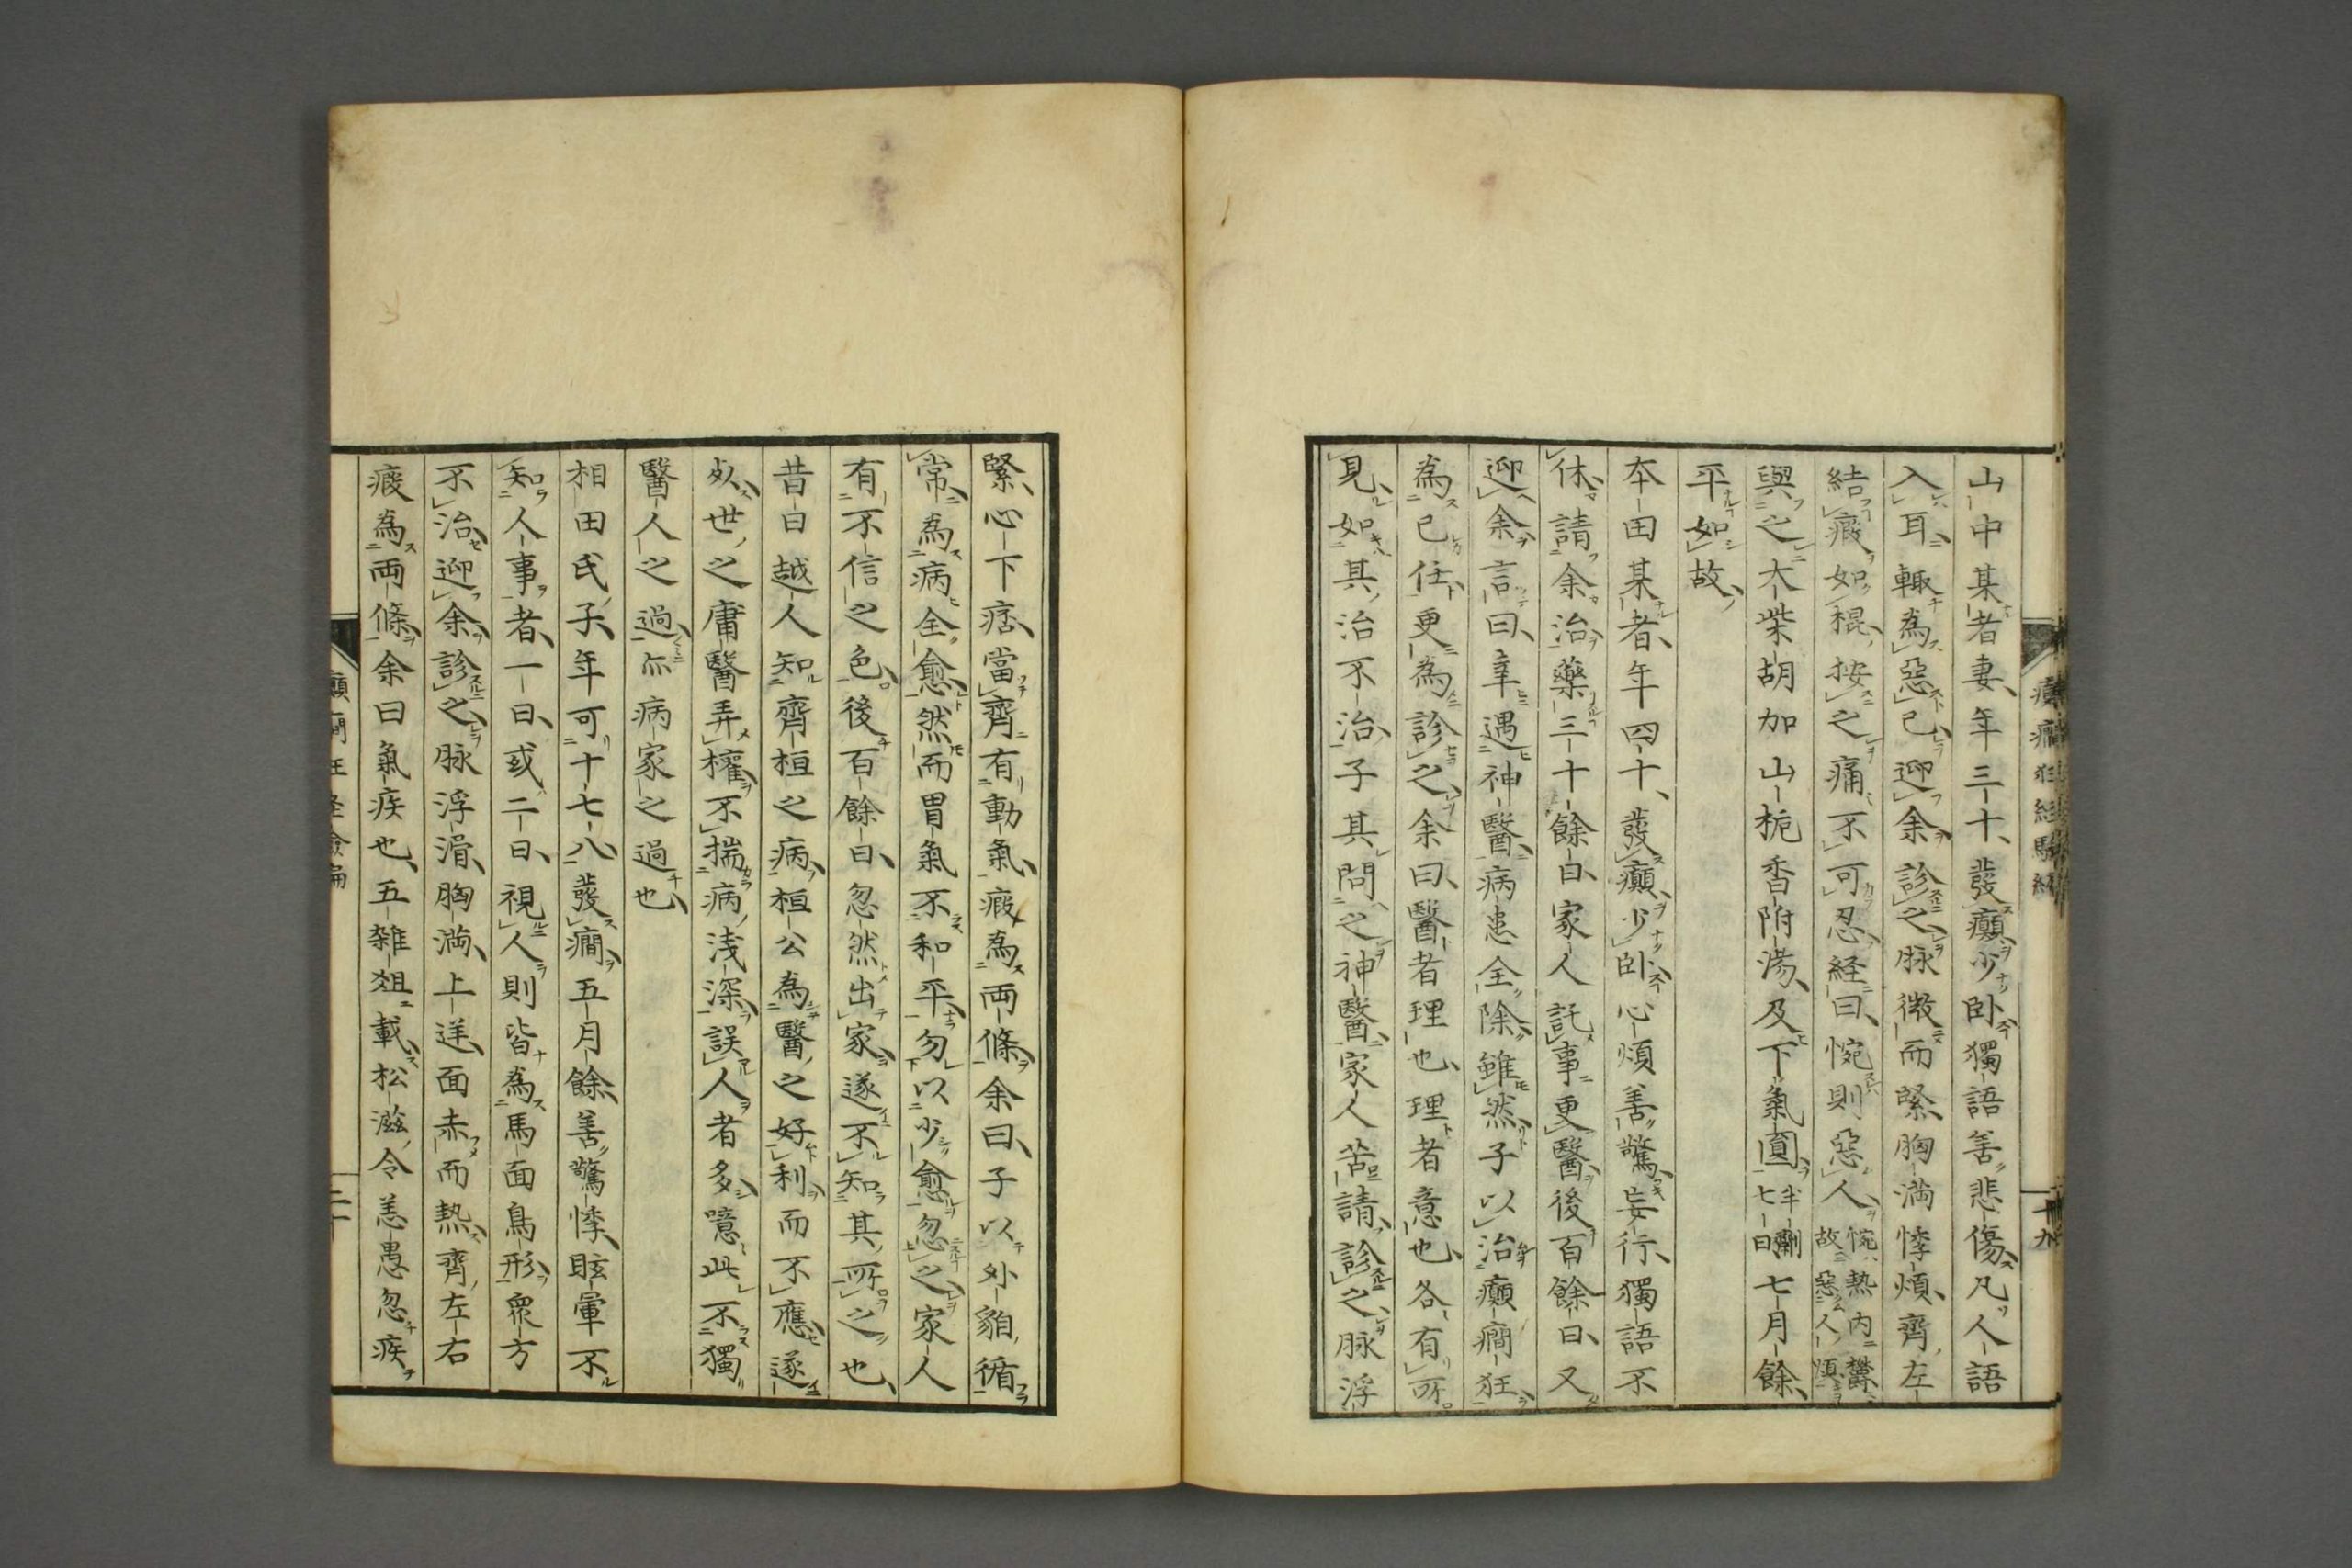 山中某者妻、年三十、發癲少卧獨語善悲傷凡人語
入耳輙為惡已迎余診之脉微而緊、胸満悸煩、齊左
結癥如棍、按之痛不可忍経曰、惋則惡人惋熱内欝故惡人煩
與之大柴胡加山栀香附湯、及下氣圓七日半劑七月餘、
平如故、
本田某者、年四十、發癲少卧心煩善驚、妄行、獨語不
休、請余治藥三十餘日、家人託事更醫後百餘日、又
迎余言曰、幸遇神醫、病患全除雖然子以治癲癇狂
為己任更為診之余曰、醫者理也、理者意也、各有所
見、如其治不治、子其問之神醫、家人苦請、診之脉浮
緊、心下痞、當齊有動氣、瘕為両條余曰、子以外貌循
常為病全愈然而胃氣不和平勿以少愈忽之家人
有不信之色、後百餘日、忽然出家遂不知其所之也、
昔日越人知齊桓之病、桓公為醫之好利而不應遂
𠩄世之庸醫弄權不揣病浅深、誤人者多、噫此不獨
醫人之過、亦病家之過也、
相田氏子、年可十七八發癇五月餘、善驚悸、眩暈不
知人事者、一日、或二日、視人則皆為馬面鳥形衆方
不治、迎余診之、脉浮滑、胸満、上逆、面赤而熱、齊左右
瘕為両條余曰氣疾也、五雜爼載松滋令恙愚忽疾